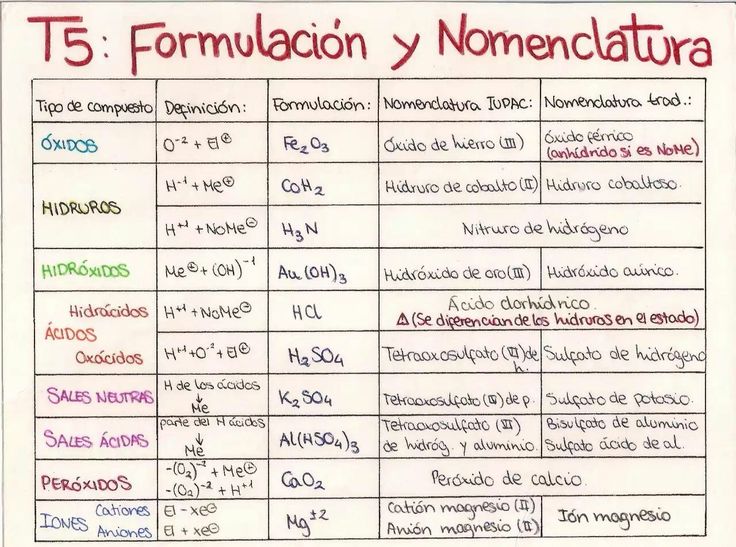 T5: Formulación y Nomenclatura
Tipo de compuesto Definición: Formulación: Nomenclatura IUPAC: Nomenclatura trad.:
ÓXIDOS O⁻² + El⊕ Fe₂O₃ Óxido de hierro (III) Óxido férrico
(anhídrido si es NoMe)
HIDRUROS
H⁻¹ + Me⊕ CoH₂ Hidruro de cobalto (II) Hidruro cobaltoso.
H⁺¹ + NoMe⊖ H₃N Nitruro de hidrógeno
HIDRÓXIDOS Me⊕ + (OH)⁻¹ Au(OH)₃ Hidróxido de oro (III) Hidróxido aúrico.
ÁCIDOS
Hidrácidos H⁺¹ + NoMe⊖ HCl Ácido clorhídrico.
⚠(Se diferencian de los hidruros en el estado)
Oxácidos H⁺¹+O⁻²+El⊕ H₂SO₄ Tetraoxosulfato (VI) de Sulfato de hidrógeno
h.
SALES NEUTRAS H de los ácidos K₂SO₄ Tetraoxosulfato (VI) de p. Sulfato de potasio.
↓
Me
SALES ÁCIDAS parte del H ácidos Al(HSO₄)₃ Tetraoxosulfato (VI) Bisulfato de aluminio
↓ de hidróg. y aluminio. Sulfato ácido de al.
Me
PERÓXIDOS -(O₂)⁻² + Me⊕ CaO₂ Peróxido de calcio.
-(O₂)⁻² + H⁺¹
IONES
Cationes El - xe⊖ Mg±² Catión magnesio (II) Ión magnesio
Aniones El + xe⊖ Anión magnesio (II)